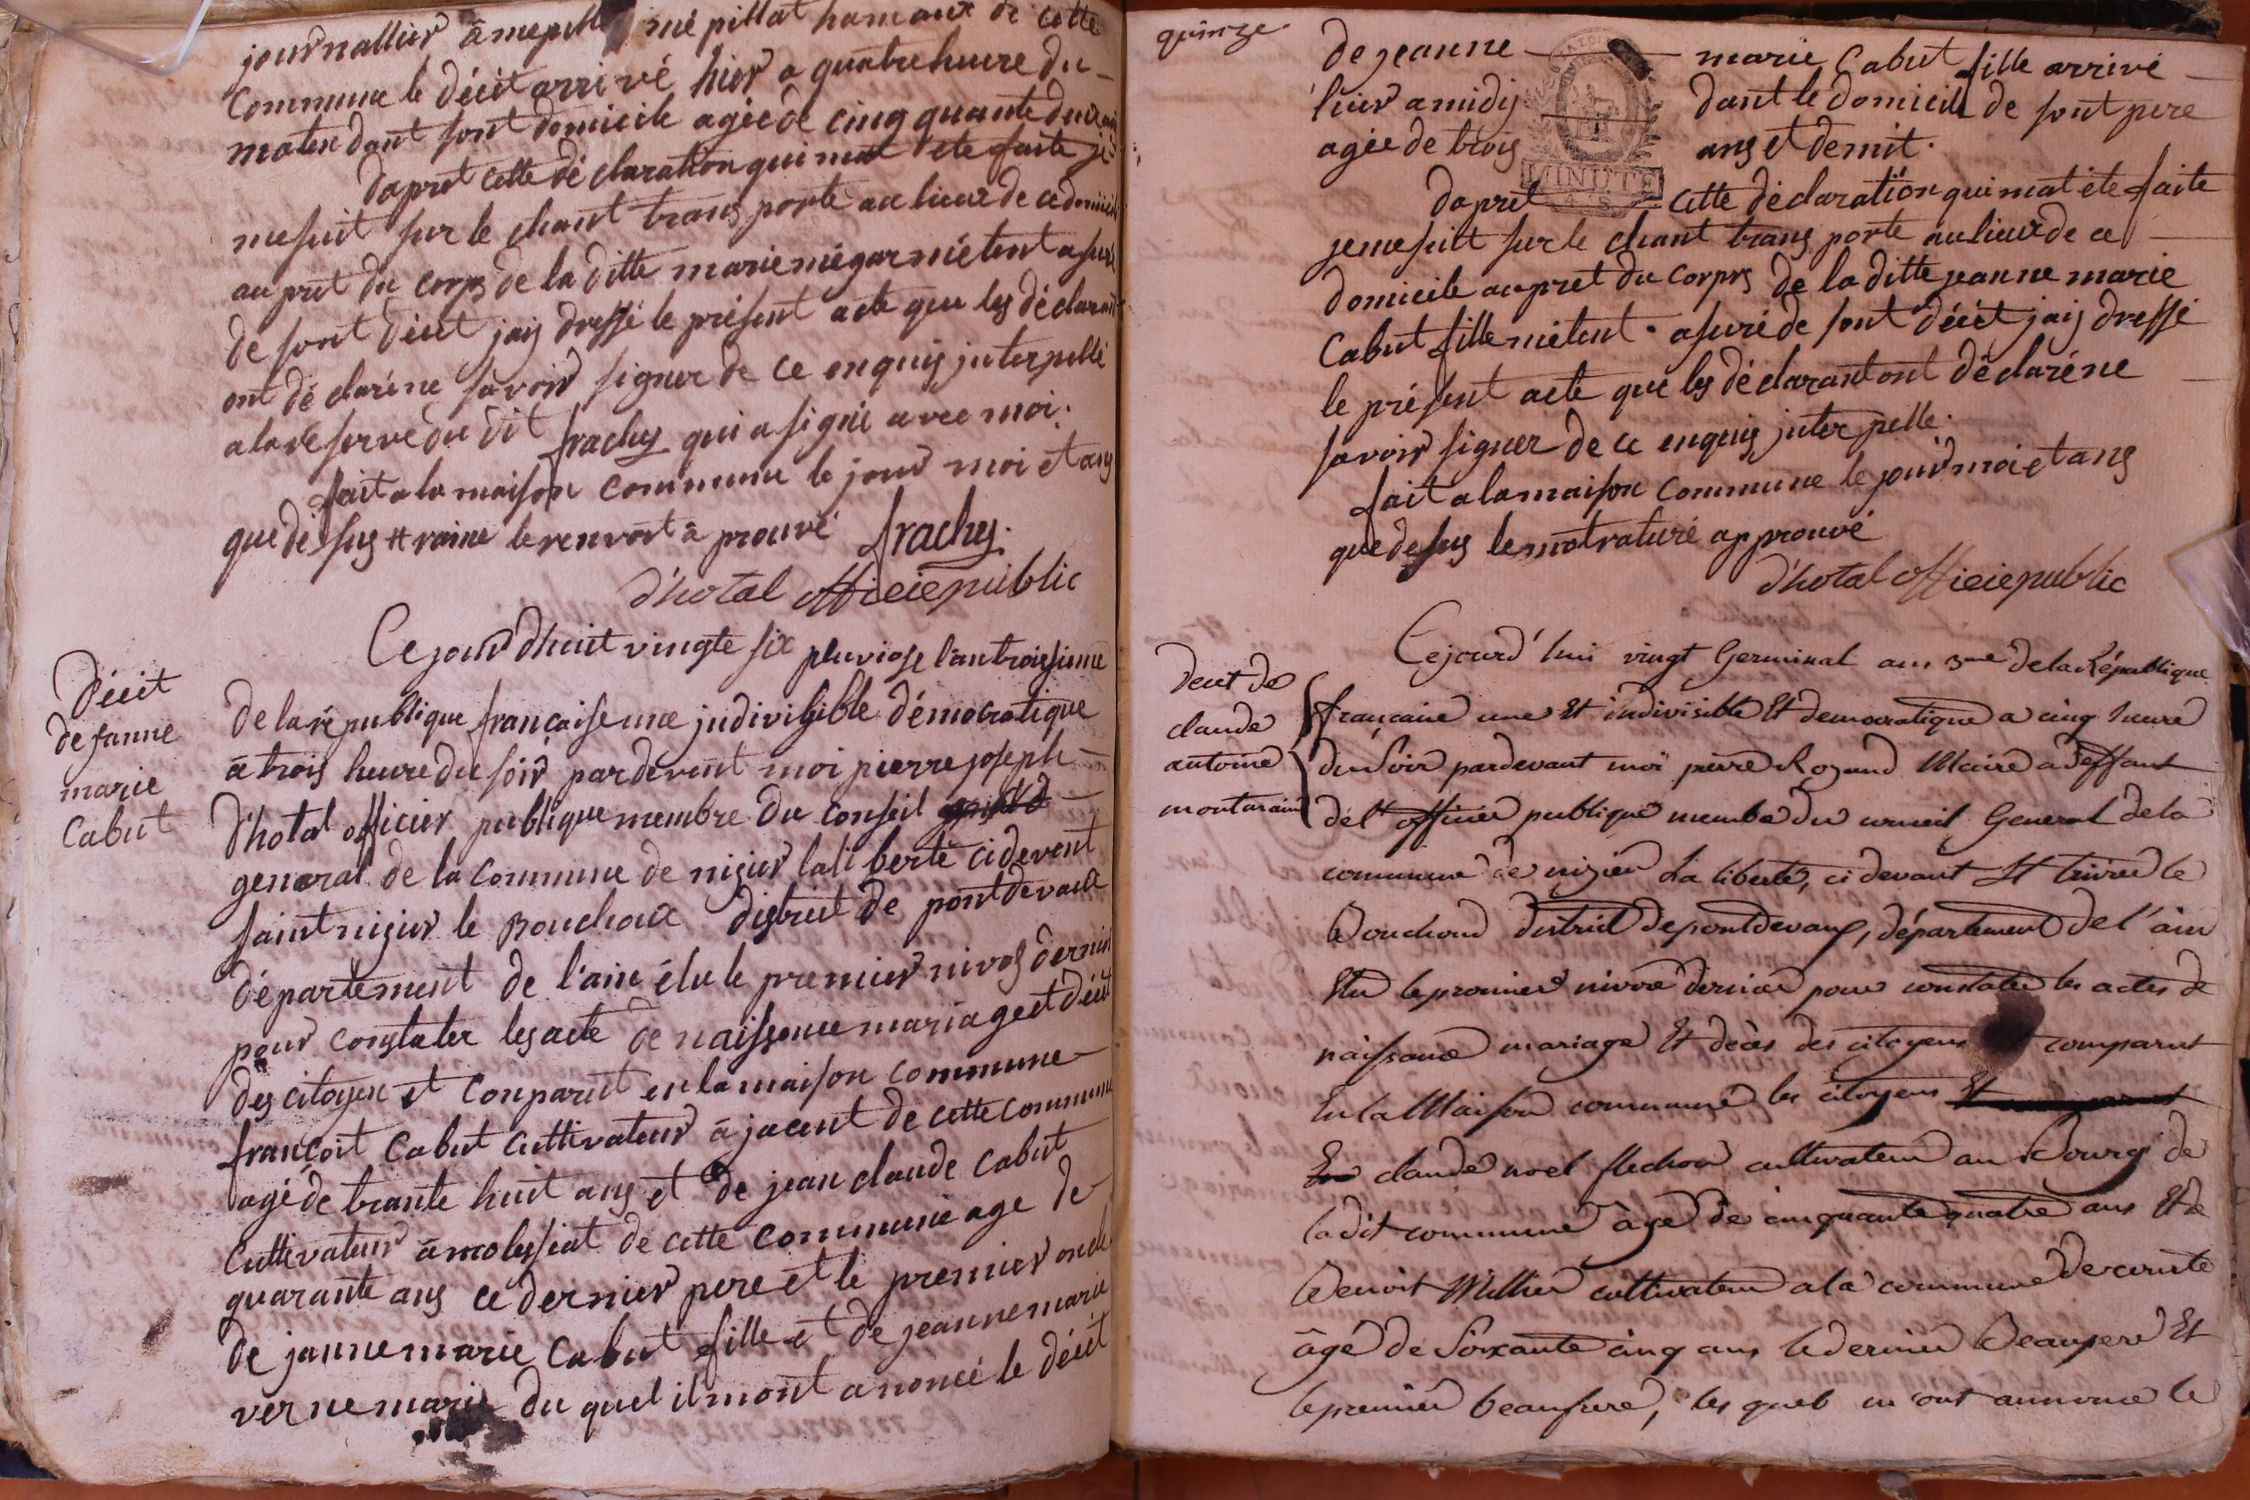 journallier a mepille né pillat hameaux de cette
commune le décit arrivé hier a quatre heure du
maten dont sont domicile agée de cinq quante deux ans
dapret cette déclaration qui mat ete faite je
me suit sur le chant trans porte au lieux de ce domicile
au pret du corps de la ditte marie niegarniétent asuré
de sont décit jaij dressé le présent acte que les déclarant
ont déclaréne savoir signer de ce enquis juterpellé
a la reserve du dit frachy qui a signé avec moi.
fait a la maison commune le jour moi et ans
que désus # raine le renvort a prouvé frachy.
d'hotal officié public
Décit
de janne
marie
Cabut
Ce jour dhuit vingte six pluviose l'an troissieme
de la république francaise une judivisible démocratique
a trois heure du soir par devent moi pierre joseph
d'hotal officier publique membre du conseil
general de la commune de nizier la liberté cidevent
saint nizier le Bouchoux distrit de pont devaux
département de l'ain élu le premier nivos dernier
pour constater les acte de naissance mariage et décit
des citoyen et conparut en la maison commune
francoit Cabut cultivateur a jacent de cette commune
agé de trante huit ans et de jean claude cabut
cultivateur a molissiat de cette commune age de
quarante ans ce dernier pere et le premier oncle
de janne marie Cabut fille et de jeanne marie
verne marie du quel il mont anoncé le décit
quinze
de jeanne marie Cabut fille arrivé
hier a midij dant le domicile de sont pere
agée de trois ans et demit.
MINUTE
dapret cette déclaration qui mat éte faite
je me suit sur le chant trans porte au lieux de ce
domicile au pret du corps de la ditte jeanne marie
Cabut fille niétent asuré de sont décit jaij dressé
le présent acte que les déclarant ont déclaréne
savoir signer de ce enquis juterpelle.
fait a la maison commune le jour moi et ans
que desus le mot raturé approuvé
d'hotal officié public
decet de
claude
antoine
montarain
Cejourd'hui vingt Germinal an 3me de la République
française une et indivisible et democratique a cinq heure
du soir pardevant moi pierre Rozand Maire a deffaut
de l'officier publique membre du conseil General de la
commune de nizier La liberté, ci devant St Nizier le
Bouchoud district de pontdevaux, département de l'ain
Elu le premier nivose dernier pour constater les actes de
naissance mariage et décès des citoyens comparut
En la Maison commune les citoyens
claude noel flechon cultivateur au Bourg de
ladit commune âgé de cinquante quatre ans et de
Benoit Millier cultivateur a la commune de
âgé de soixante cinq ans le dernier Beaupere et
le premier beaufrere, les quels m'ont annonce le